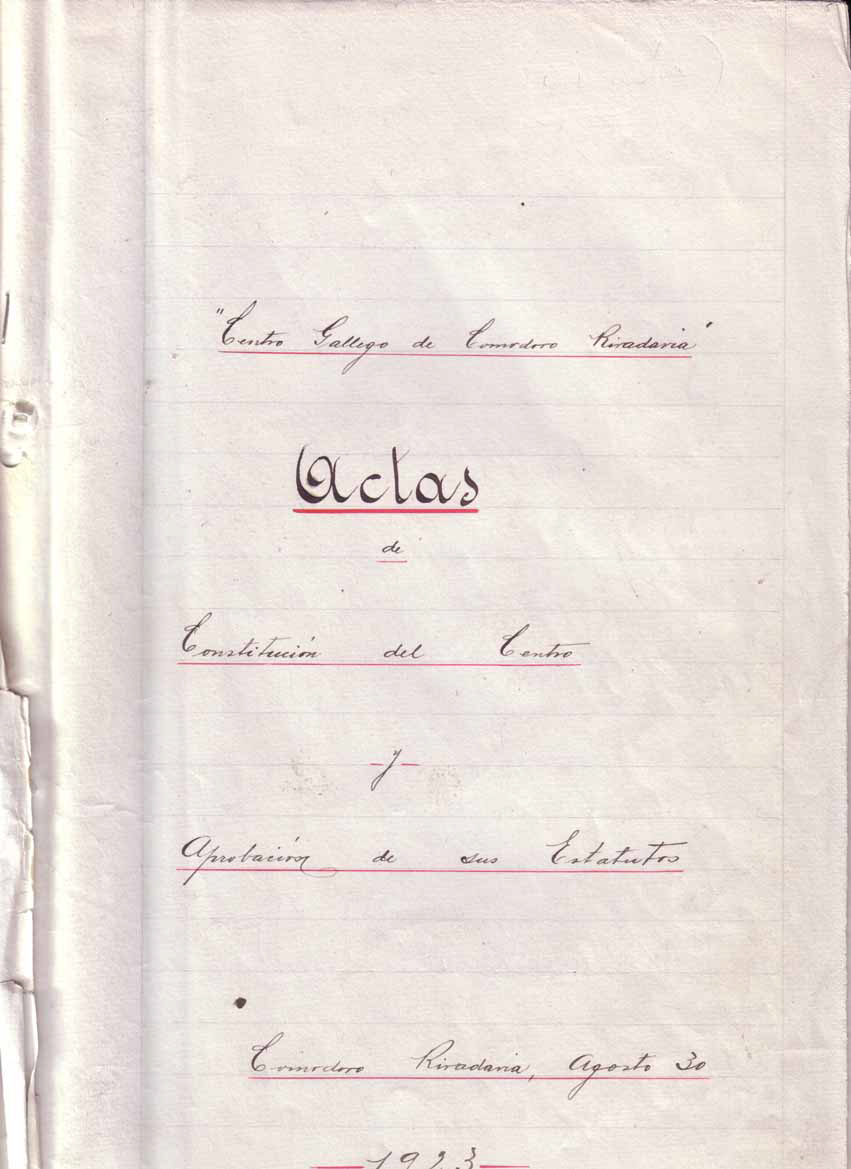 "Centro Gallego de Comodoro Rivadavia"
Actas
de
Constitución del Centro
y
Aprobación de sus Estatutos
Comodoro Rivadavia, Agosto 30
1923